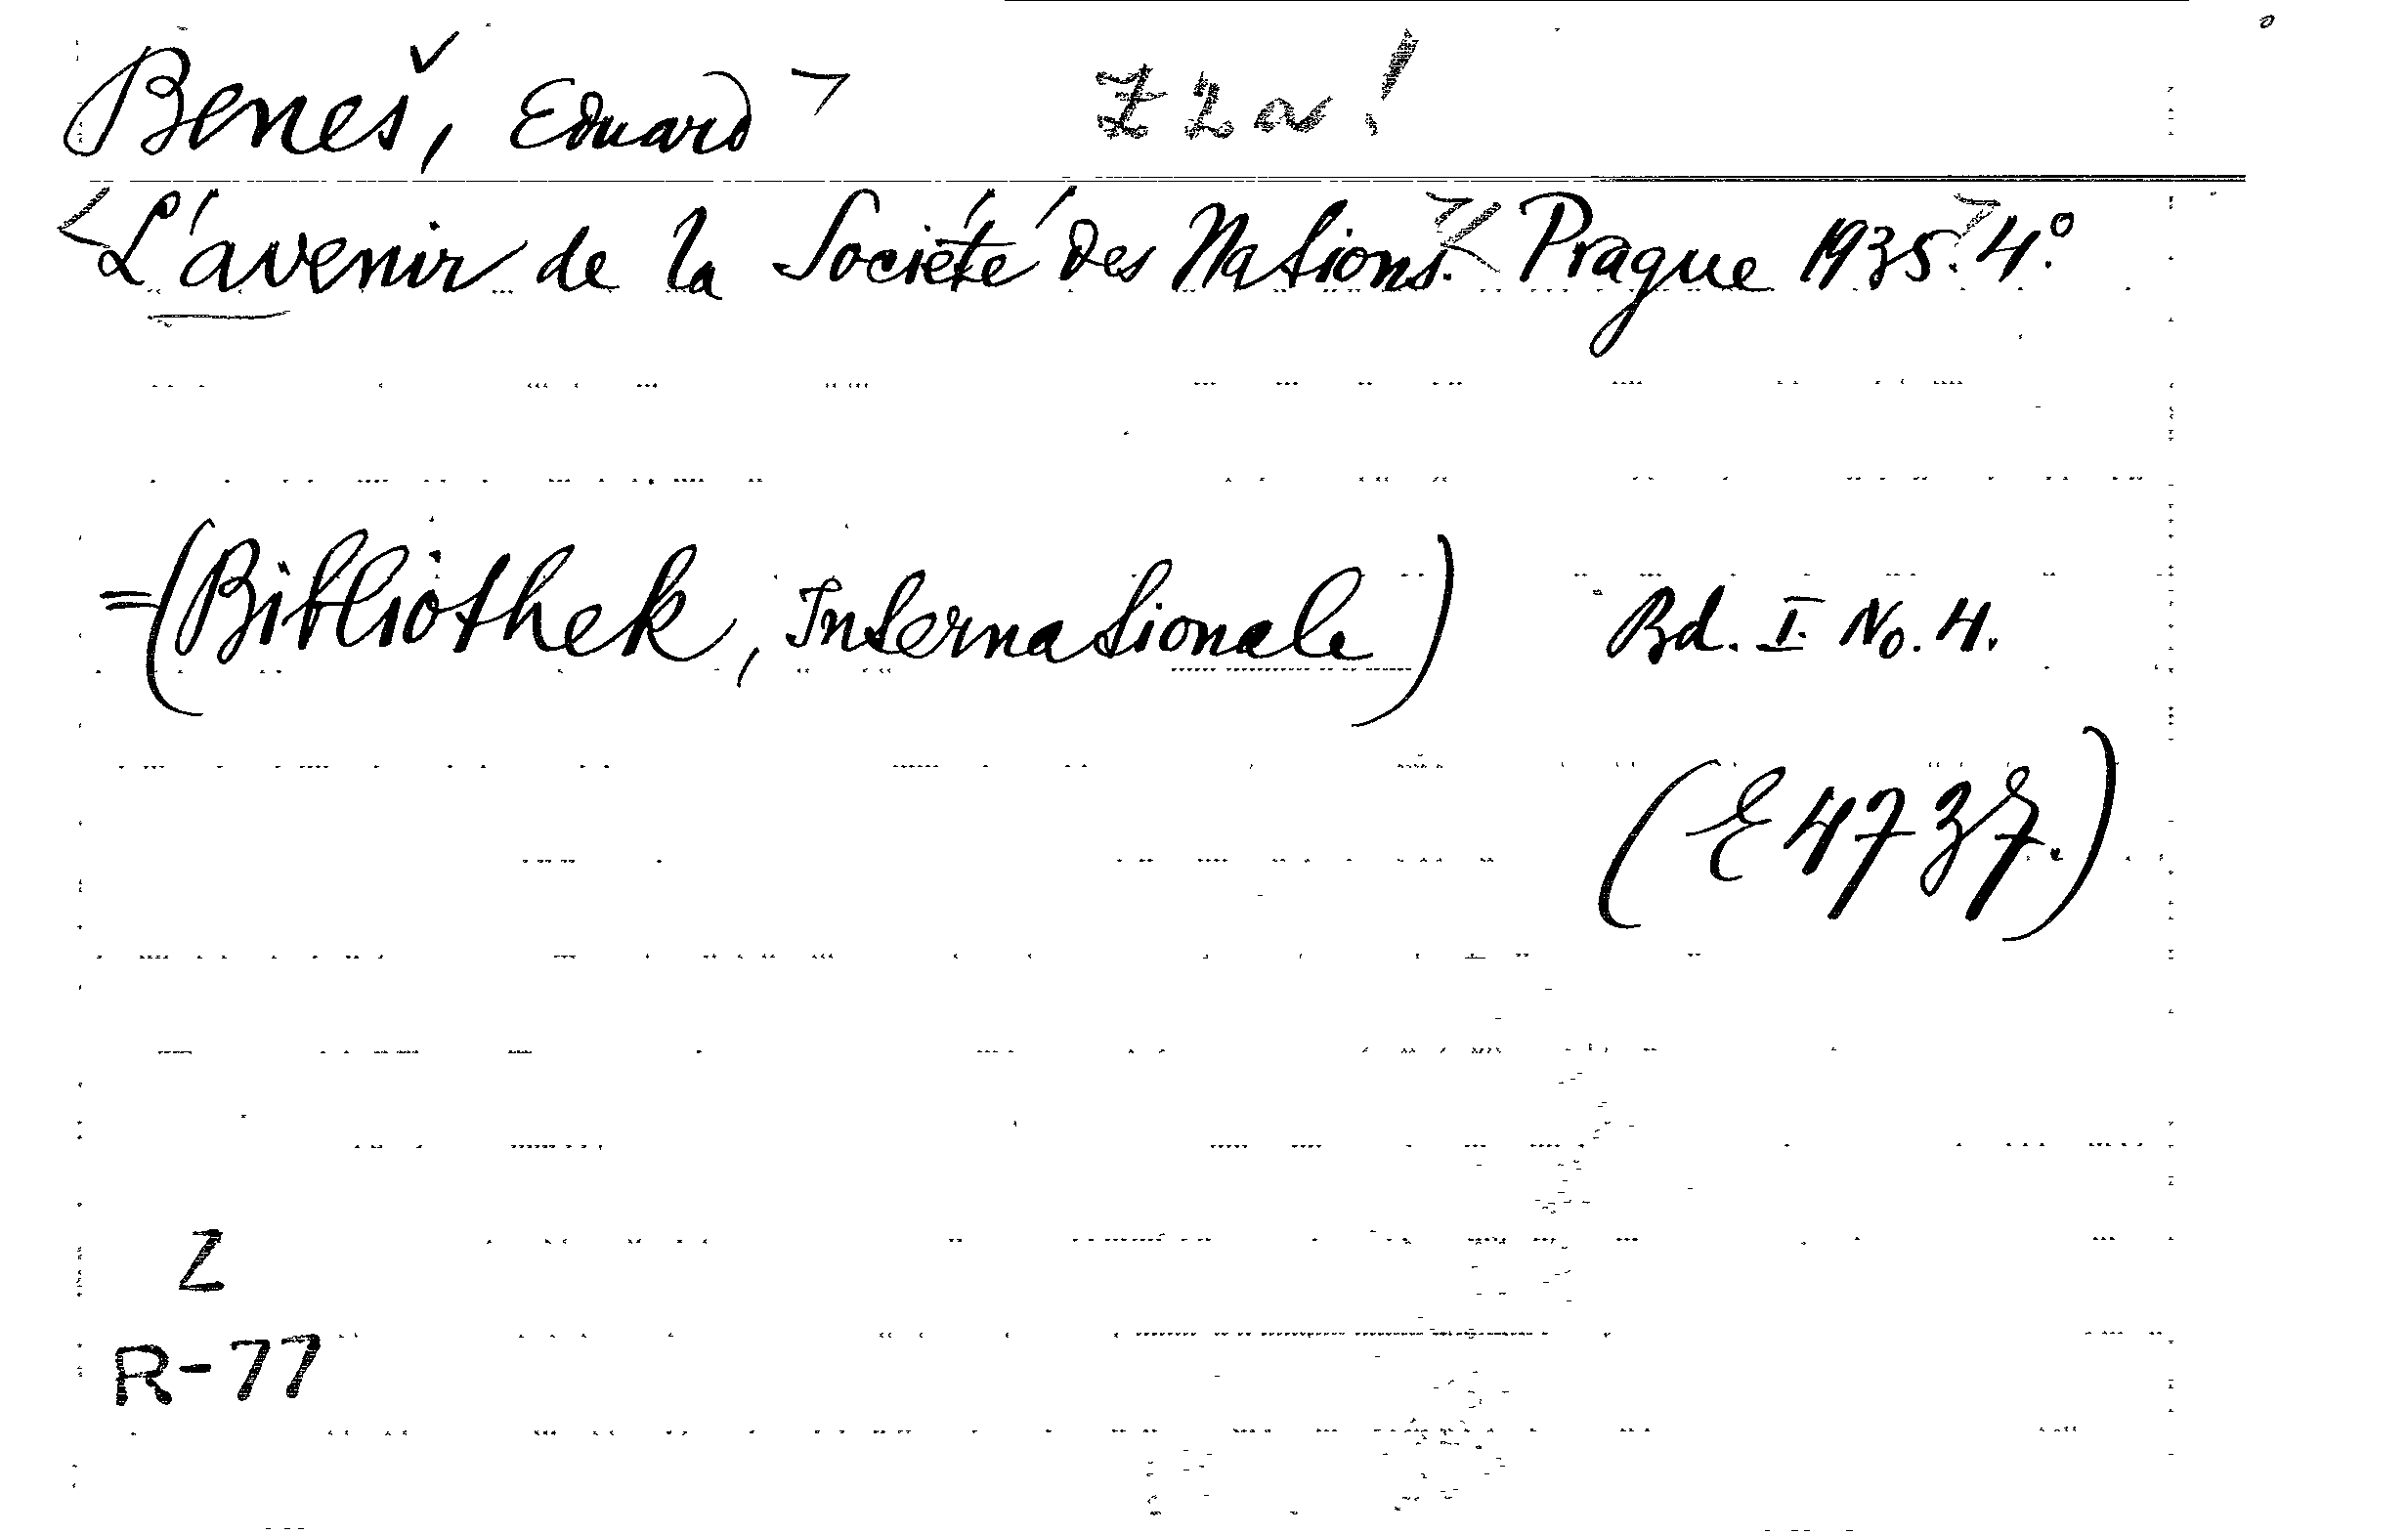 Beneš, Eduard
L'avenir de la Société des Nations. Prague 1935. 4°.
=(Bibliothek, Internationale) Bd. I. No. 4.
(E 4737.)
Z
R-77